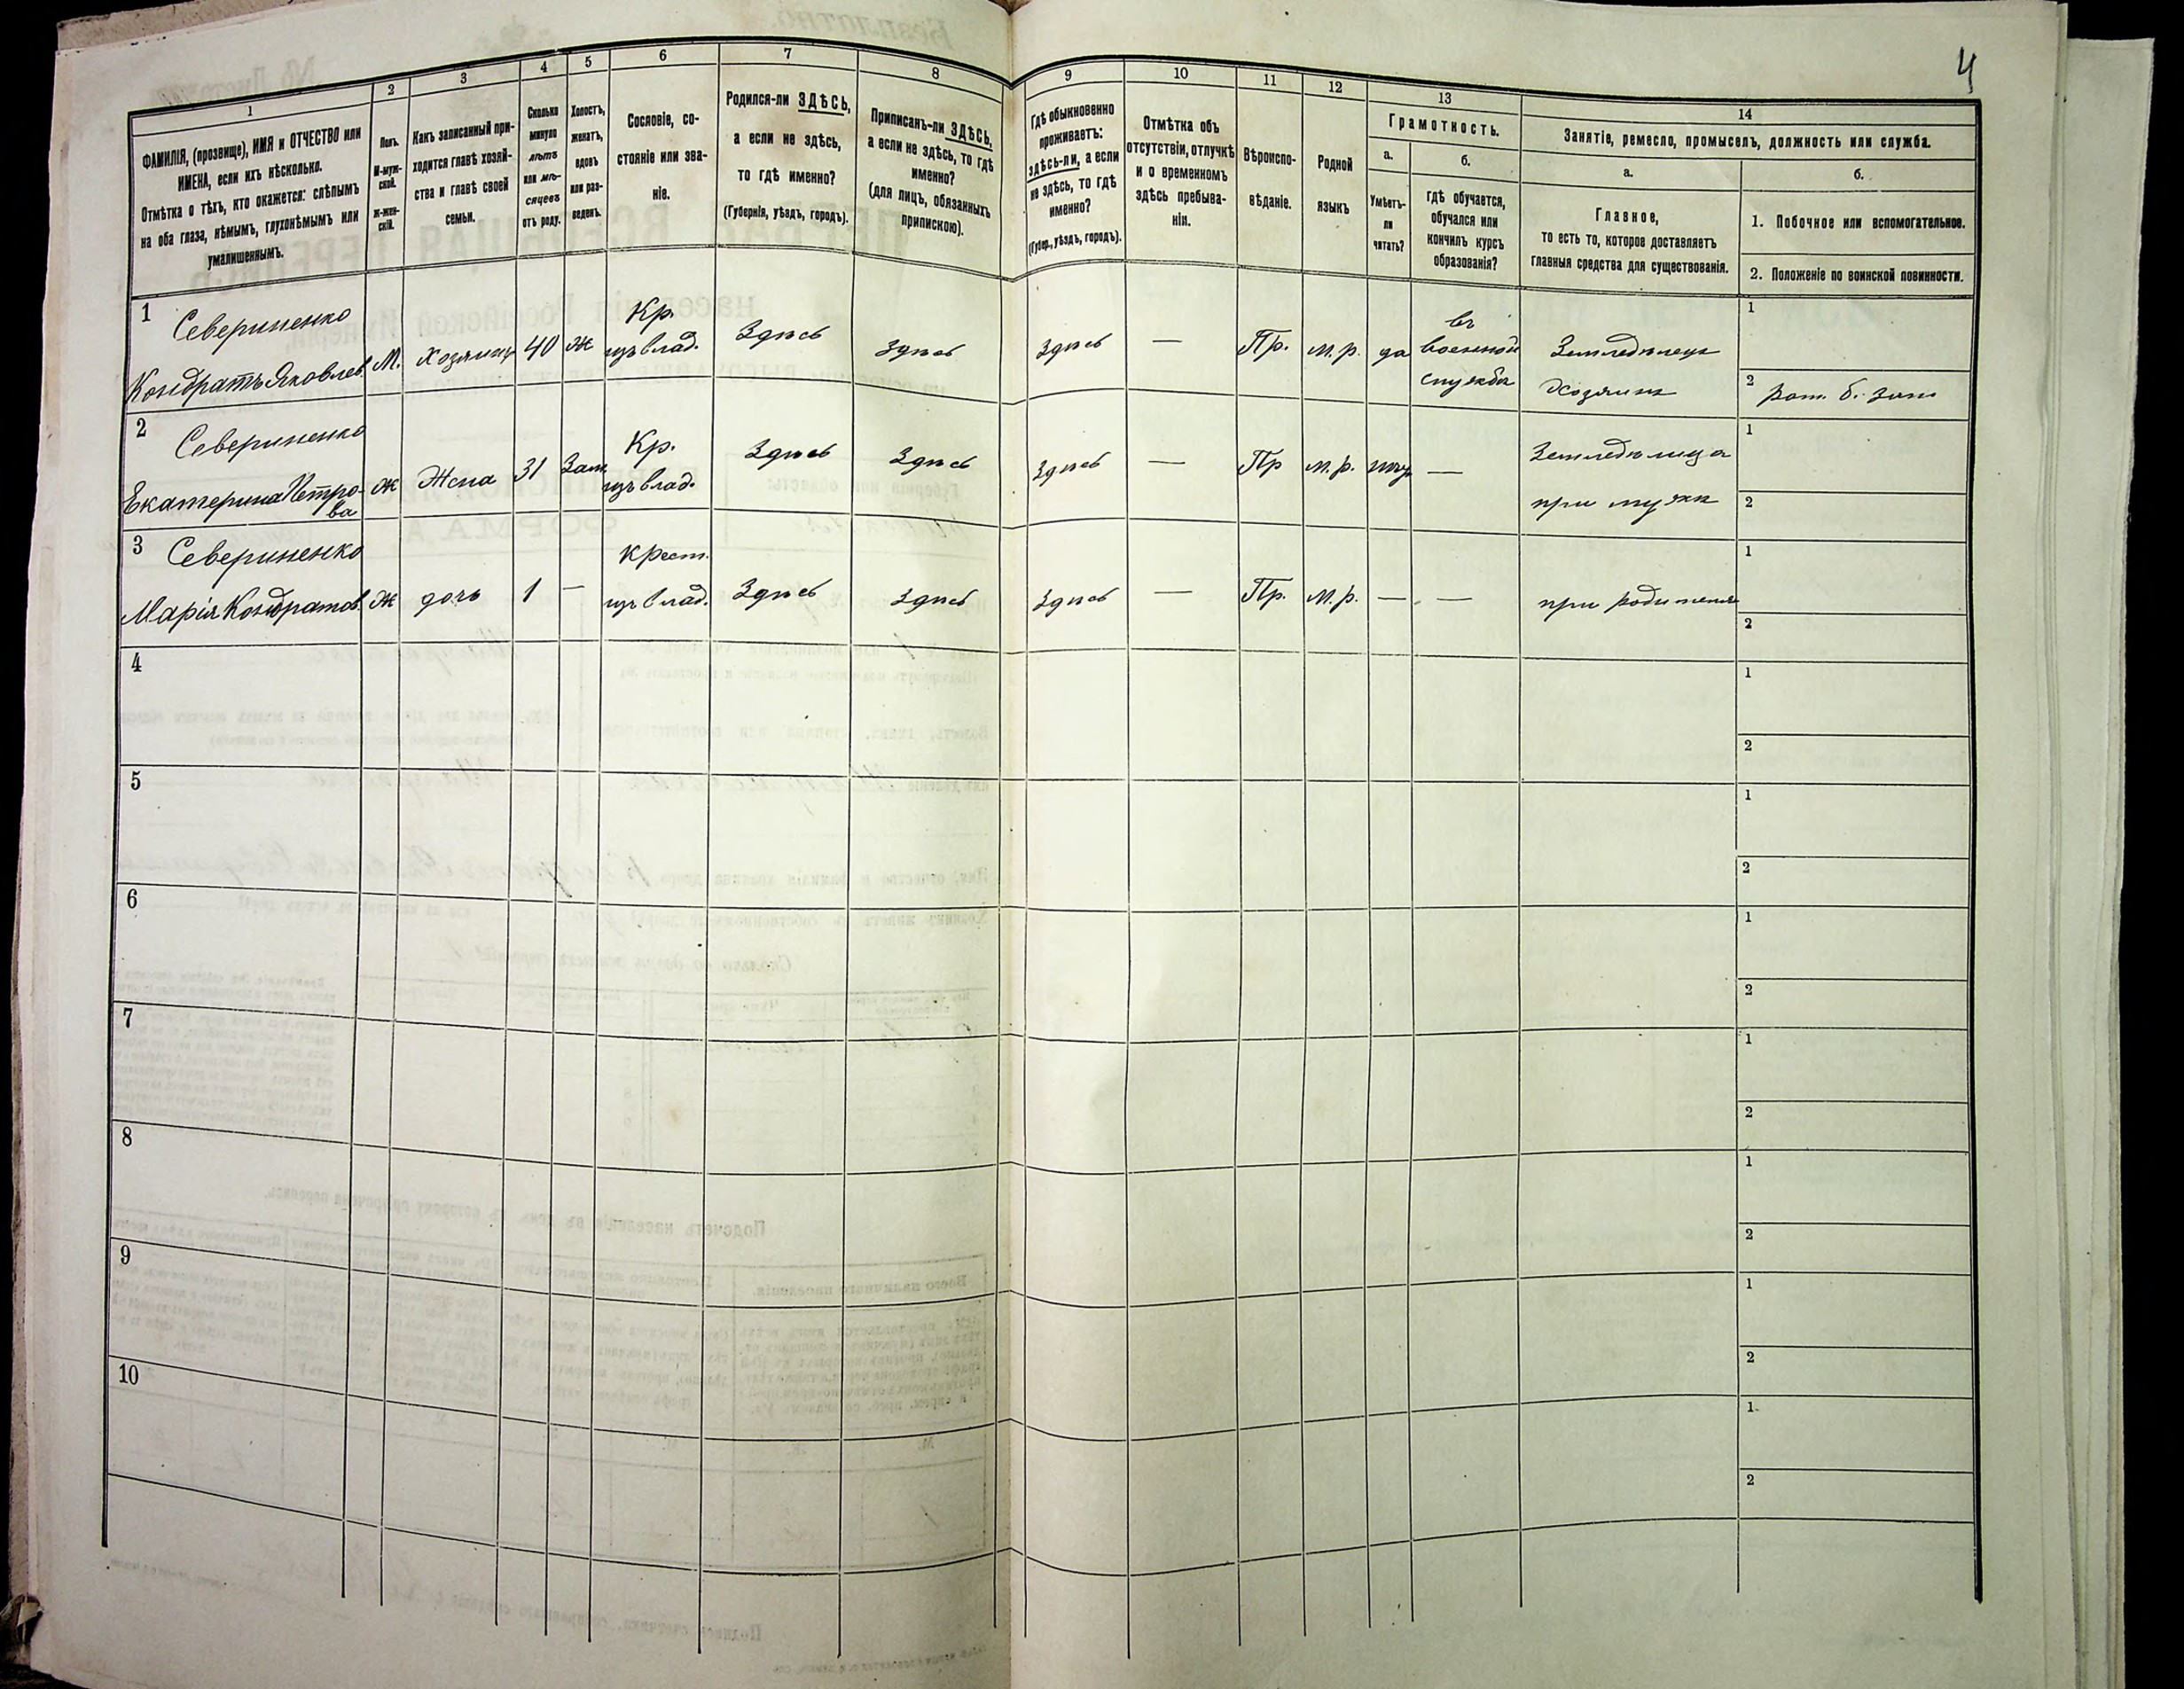 4
1
2
3
4
5
6
7
8
9
10
11
12
13
14
ФАМИЛІЯ, (прозвище), ИМЯ и ОТЧЕСТВО или
ИМЕНА, если ихъ нѣсколько.
Отмѣтка о тѣхъ, кто окажется: слѣпымъ
на оба глаза, нѣмымъ, глухонѣмымъ или
умалишеннымъ.
Полъ.
М-муж-
ской.
Ж-жен-
скій.
Какъ записанный при-
ходится главѣ хозяй-
ства и главѣ своей
семьи.
Сколько
минуло
лѣтъ
или мѣ-
сяцевъ
отъ роду.
Холостъ,
женатъ,
вдовъ
или раз-
веденъ.
Сословіе, со-
стояніе или зва-
ніе.
Родился-ли ЗДѢСЬ,
а если не здѣсь,
то гдѣ именно?
(Губернія, уѣздъ, городъ).
Приписанъ-ли ЗДѢСЬ,
а если не здѣсь, то гдѣ
именно?
(для лицъ, обязанныхъ
припискою).
Гдѣ обыкновенно
проживаетъ:
здѣсь-ли, а если
не здѣсь, то гдѣ
именно?
(Губер., уѣздъ, городъ).
Отмѣтка объ
отсутствіи, отлучкѣ
и о временномъ
здѣсь пребыва-
ніи.
Вѣроиспо-
вѣданіе.
Родной
языкъ
Грамотность.
а.
Умѣетъ-
ли
читать?
б.
гдѣ обучается,
обучался или
кончилъ курсъ
образованія?
Занятіе, ремесло, промыселъ, должность или служба.
а.
Главное,
то есть то, которое доставляетъ
главныя средства для существованія.
б.
1. Побочное или вспомогательное.
2. Положеніе по воинской повинности.
1
Севериненко
Кондратъ Яковлев.
М.
Хозяинъ
40
Ж
Кр.
изъ влад.
Здѣсь
Здѣсь
Здѣсь
—
Пр.
м.р.
да
въ
военной
службѣ
Земледѣлецъ
Хозяинъ
1
2
рат.
2
Севериненко
Екатерина Петро-
ва
Ж
Жена
31
Зам.
Кр.
изъ влад.
Здѣсь
Здѣсь
Здѣсь
—
Пр
м.р.
—
Земледѣлица
при мужѣ
1
2
3
Севериненко
Марія Кондратов.
Ж
дочь
1
—
Крест.
изъ влад.
Здѣсь
Здѣсь
Здѣсь
—
Пр.
м.р.
—
—
при
1
2
4
1
2
5
1
2
6
1
2
7
1
2
8
1
2
9
1
2
10
1
2